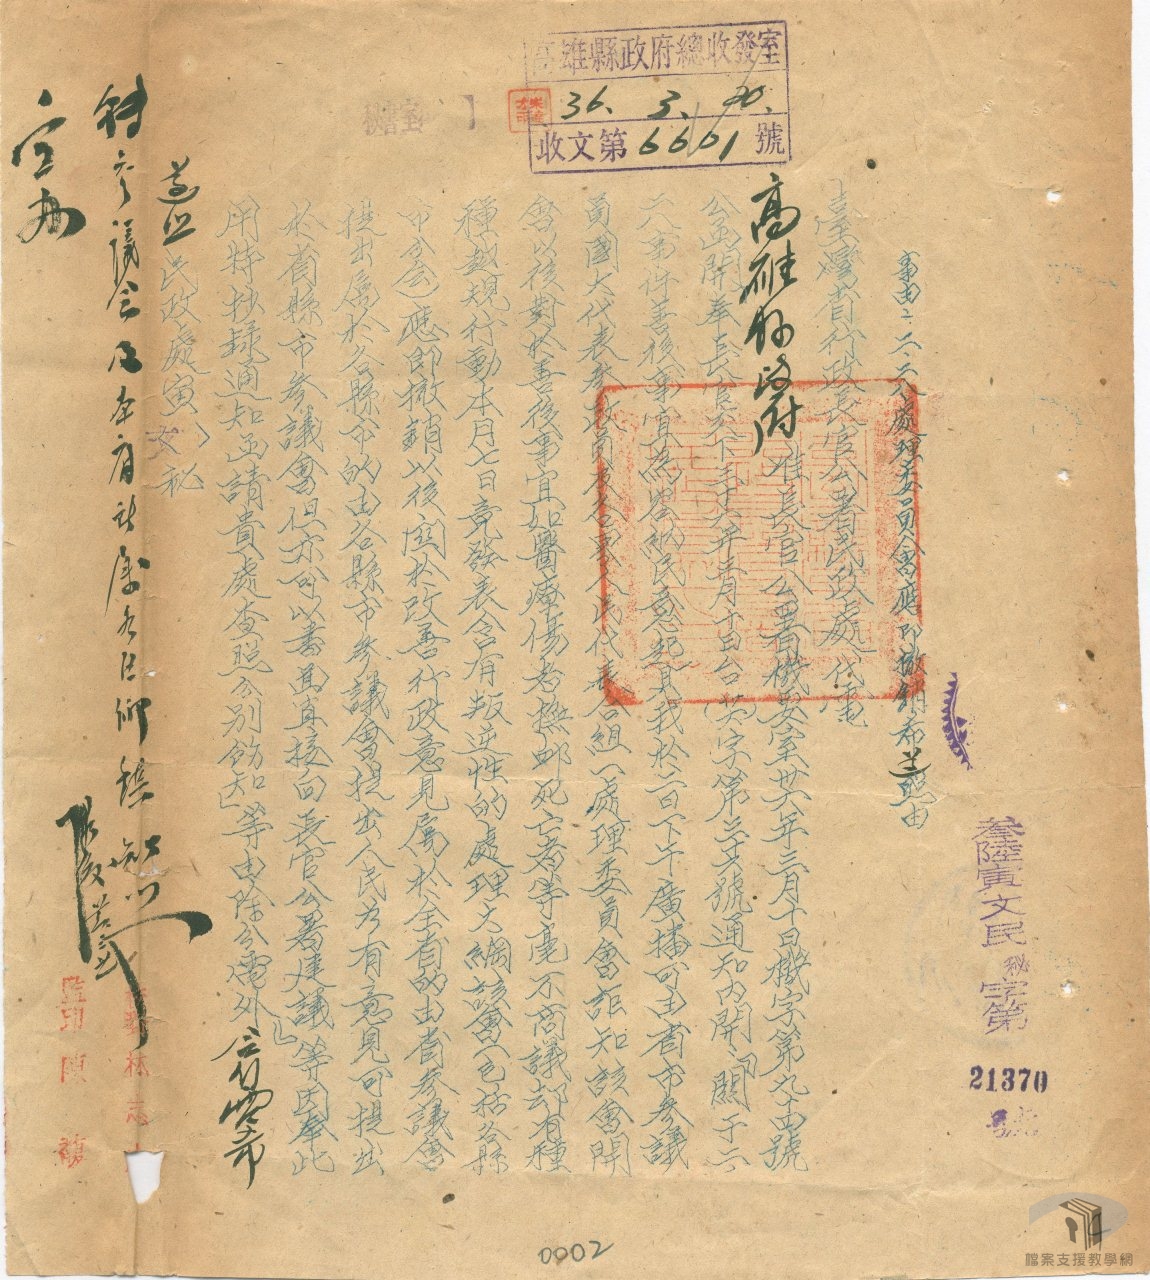 高雄縣政府總收發室
36. 3. 20.
收文第6601號
秘書室
事由：二二八處理委員會應即撤銷希遵照由
叁陸寅文民秘字第
21370
號
臺灣省行政長官公署民政處代電
高雄縣政府
准長官公署機要室卅六年三月十日機字第九十四號
公函開奉長官交下卅六年三月十日台字第三十六號通知內開「關于二二
八事件善後事宜為容納民意起見我於二日下午廣播可由省市參議
員國大代表參政員及各界人民代表合組一處理委員會詎知該會開
會以後對於善後事宜如醫療傷者撫卹死亡者等毫不商議却有種
種越規行動本月七日竟發表含有叛逆性的處理大綱該會(包括各縣
市分會)應即撤銷以後關於改善行政意見屬於全省的由省參議會
提出屬於各縣市的由各縣市參議會提出人民如有意見可提出
於省縣市參議會但亦可以書面直接向長官公署建議等因奉此
用特抄錄通知函請貴處查照分別飭知」等由除分電外合行電希
遵照民政處寅文秘
監印陳
林
0002
檔案支援教學網